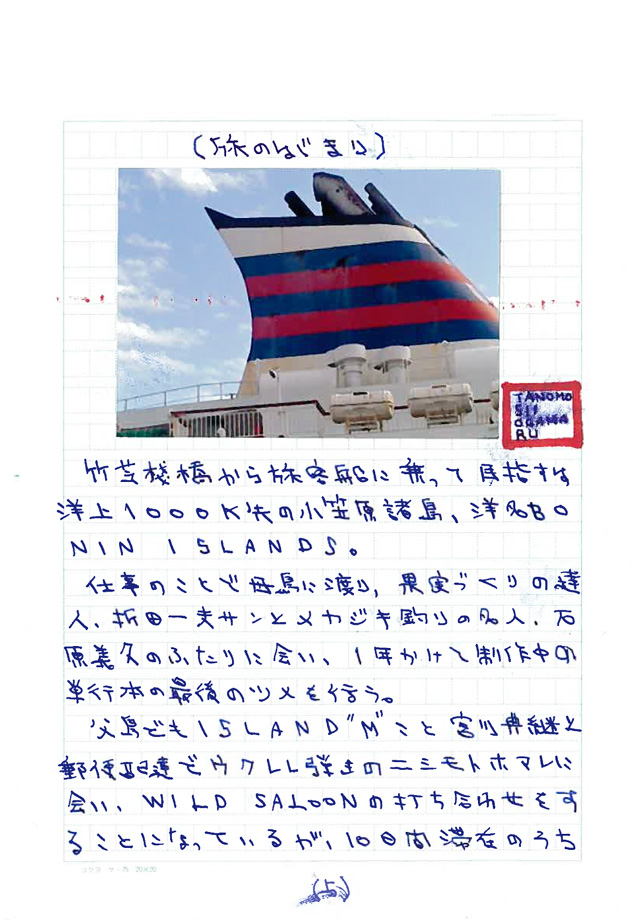 (旅のはじまり)
TANOMO
SII
OGAMA
RU
竹芝棧橋から旅客船に乗って目指すは
洋上1000K先の小笠原諸島、洋名BO
NIN ISLANDS。
仕事のことで母島に渡り、果実づくりの達
人、折田一夫サンとメカジキ釣りの名人、石
原義久のふたりに会い、1年かけて制作中の
単行本の最後のツメを行う。
父島でもISLAND"M"こと宮川典継と
郵便配達でウクレレ弾きのニシモトホマレに
会い、WILD SALOONの打ち合わせをす
ることになっているが、10日間滞在のうち
(上)
コクヨ ケ-70 20×20